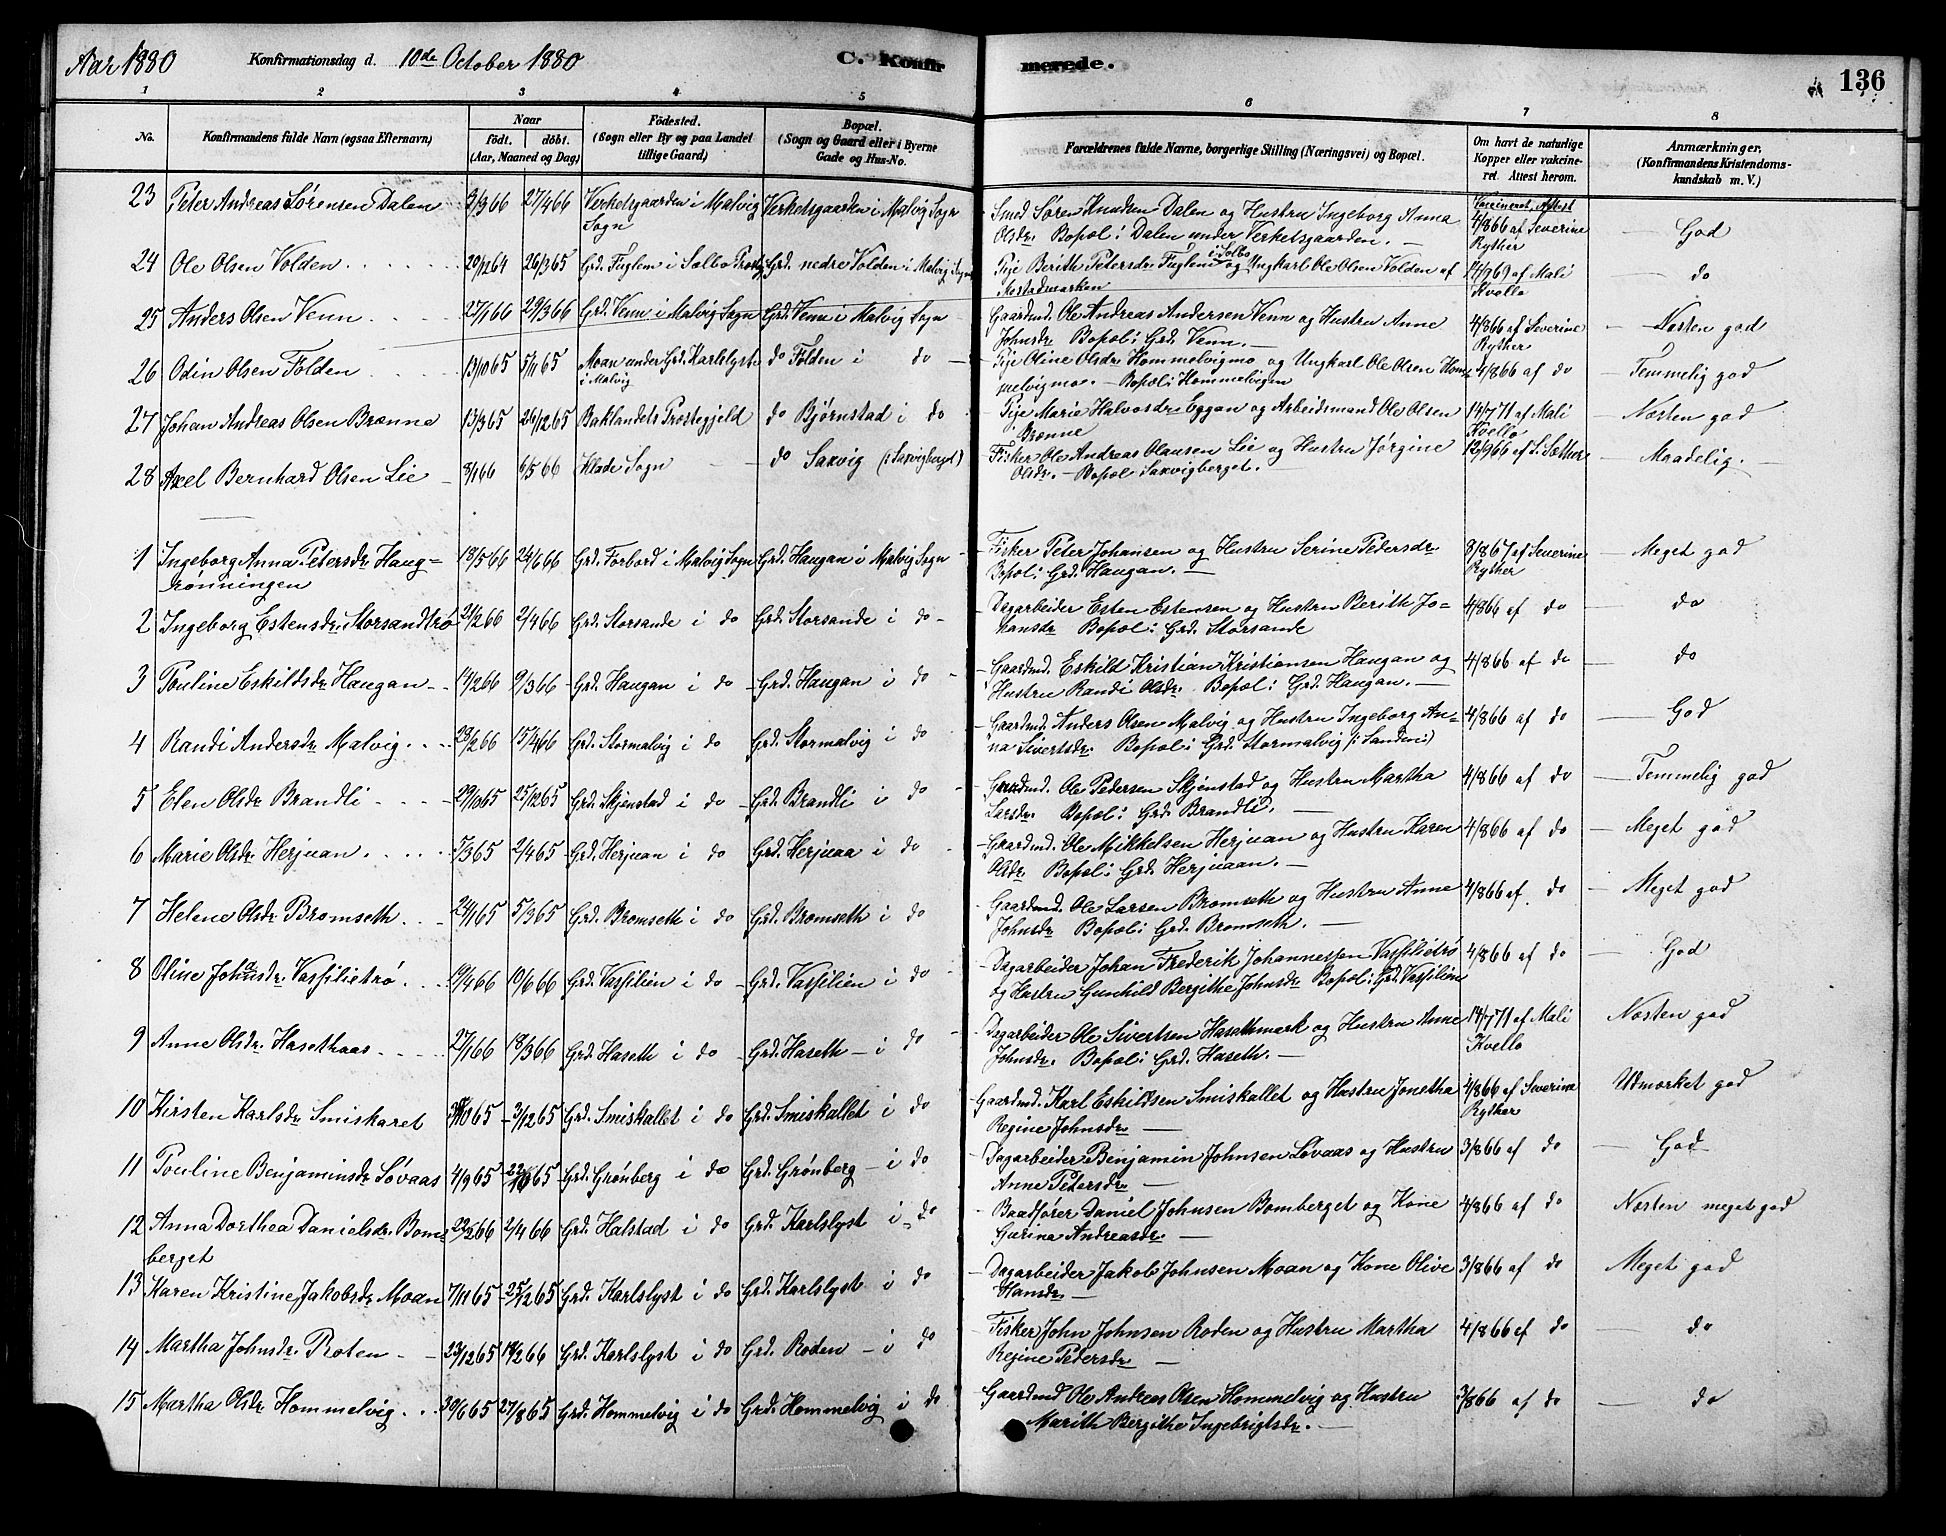 Aar 1880 Konfirmationsdag d. 10de October 1880 C. Konfirmerede. 136
1 2 3 4 5 6 7 8
No. Konfirmandens fulde Navn (ogsaa Efternavn) Naar födt. döbt. (Aar, Maaned og Dag) Födested. (Sogn eller By og paa Landet tillige Gaard) Bopæl. (Sogn og Gaard eller i Byerne Gade og Hus-No. Forældrenes fulde Navne, borgerlige Stilling (Næringsvei) og Bopæl. Om havt de naturlige Kopper eller vakcineret. Attest herom. Anmærkninger. (Konfirmandens Kristendomskundskab m. V.)
23 Peter Andreas Sørensen Dalen 9/366 27/466 Verketsgaarden i Malvig Sogn Verketsgaarden i Malvig Sogn Smed Søren Knudsen Dalen og Hustru Ingeborg Anna Olsdr. Bopæl: Dalen under Verketsgaarden. Vaccineret, Attest 4/866 af Severine Ryther God
24 Ole Olsen Volden 20/1264 26/365 Grd. Fuglem i Sælbo Prostg. Grd. nedre Volden i Malvig Sogn Pige Berith Petersdr. Fuglem i Selbo og Ungkarl Ole Olsen Volden af Mostadmarken 14/969 af Mali Kvello do
25 Anders Olsen Venn 27/166 29/366 Grd. Venn i Malvig Sogn Grd. Venn i Malvig Sogn Gaardmd. Ole Andreas Andersen Venn og Hustru Anne Johnsdr. Bopæl: Grd. Venn. 4/866 af Severine Ryther Næsten god
26 Odin Olsen Folden 13/1065 5/1165 Moan under Grd. Karlslyst i Malvig do Folden i do Pige Oline Olsdr. Hommelvigmo og Ungkarl Ole Olsen Hommelvigmo. Bopæl: Hommelvigen 4/866 af do Temmelig god
27 Johan Andreas Olsen Brønne 13/365 26/1265 Baklandets Prostegjeld do Bjørnstad i do Pige Marie Halvosdr. Eggan og Arbeidsmand Ole Olsen Brønne 14/771 af Mali Kvello Næsten god
28 Axel Bernhard Olsen Lie 8/166 6/566 Hlade Sogn do Saxvig (i Saxvigberget) Fisker Ole Andreas Olausen Lie og Hustru Jørgine Olsdr. Bopæl Saxvigberget. 12/966 af S. Sæther Maadelig.
1 Ingeborg Anna Petersdr. Haugrønningen 18/566 24/666 Grd. Forbord i Malvig Sogn Grd. Haugan i Malvig Sogn Fisker Peter Johansen og Hustru Serine Pedersdr. Bopæl: Grd. Haugan. 8/867 af Severine Ryther Meget god
2 Ingeborg Estensdr. Storsandtrø 21/266 2/466 Grd. Storsande i do Grd. Storsande i do Dagarbeider Esten Estensen og Hustru Berith Johansdr. Bopæl: Grd. Storsande 4/866 af do do
3 Pouline Eskildsdr. Haugan 14/266 9/366 Grd. Haugan i do Grd. Haugan i do Gaardmd. Eskild Kristian Kristiansen Haugan og Hustru Randi Olsdr. Bopæl: Grd. Haugan. 4/866 af do do
4 Randi Andersdr. Malvig 23/266 15/466 Grd. Stormalvig i do Grd. Stormalvig i do Gaardmd. Anders Olsen Malvig og Hustru Ingeborg Anna Sivertsdr. Bopæl: Grd. Stormalvig (i Sanden) 4/866 af do God
5 Elen Olsdr. Brandli 29/1065 25/1265 Grd. Skjenstad i do Grd. Brandli i do Gaardmd. Ole Pedersen Skjenstad og Hustru Martha Larsdr. Bopæl: Grd. Brandli. 4/866 af do Temmelig god
6 Marie Olsdr. Herjuan 7/365 2/465 Grd. Herjuan i do Grd. Herjuaa i do Gaardmd. Ole Mikkelsen Herjuan og Hustru Karen Olsdr. Bopæl: Grd. Herjuaan. 4/866 af do Meget god
7 Helene Olsdr. Bromseth 24/165 5/365 Grd. Bromseth i do Grd. Bromseth i do Gaardmd. Ole Larsen Bromseth og Hustru Anne Johnsdr. Bopæl: Grd. Bromseth. 4/866 af do Meget god
8 Oline Johansdr. Vasfilietrø 19/466 10/666 Grd. Vasfilien i do Grd. Vasfilien i do Dagarbeider Johan Frederik Johannessen Vasfilietrø og Hustru Gunhild Bergithe Johnsdr. Bopæl: Grd. Vasfilien 4/866 af do God
9 Anne Olsdr. Hasethaas 27/166 18/366 Grd. Haseth i do Grd. Haseth i do Dagarbeider Ole Sivertsen Hasethmark og Hustru Anne Johnsdr. Bopæl: Grd. Haseth. 14/771 af Mali Kvello Næsten god
10 Kirsten Karlsdr. Smiskaret 1065 3/1265 Grd. Smiskallet i do Grd. Smiskallet i do Gaardmd. Karl Eskildsen Smiskallet og Hustru Jonetha Regine Johnsdr. 4/866 af Severine Ryther Udmærket god
11 Pouline Benjaminsdr. Løvaas 4/965 22/1065 Grd. Grønberg i do Grd. Grønberg i do Dagarbeider Benjamin Johnsen Løvaas og Hustru Anne Petersdr. 3/866 af do God
12 Anna Dorthea Danielsdr. Bomberget 22/266 2/466 Grd. Halstad i do Grd. Karlslyst i do Baadfører Daniel Johnsen Bomberget og Kone Gurina Andreasdr. 4/866 af do Næsten meget god
13 Karen Kristine Jakobsdr. Moan 7/1165 25/1265 Grd. Karlslyst i do Grd. Karlslyst i do Dagarbeider Jakob Johnsen Moan og Kone Olive Hansdr. 3/866 af do Meget god
14 Martha Johnsdr. Roten 23/1265 18/266 Grd. Karlslyst i do Grd. Roden i do Fisker John Johnsen Roden og Hustru Martha Regine Pedersdr. 4/866 af do do
15 Martha Olsdr. Hommelvig 30/665 27/865 Grd. Hommelvig i do Grd. Hommelvig i do Gaardmd Ole Andreas Olsen Hommelvig og Hustru Marith Bergithe Ingebrigtsdr. 3/866 af do do